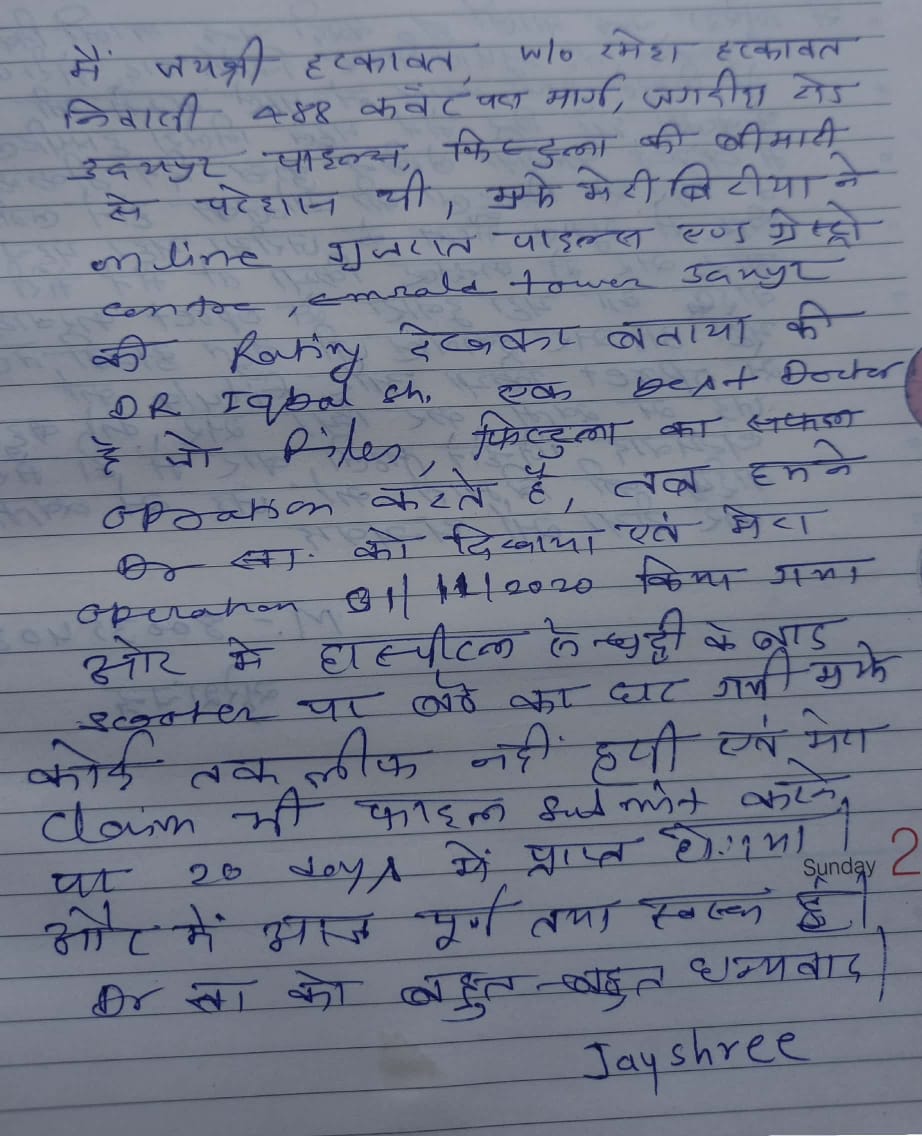 मैं जयश्री हरकावत, w/o रमेश हरकावत
निवासी 488 मार्ग, जगदीश रोड
उदयपुर पाइल्स, फिस्टुला की बीमारी
से परेशान थी, मुझे मेरी बिटीया ने
online गुजरात पाइल्स एण्ड ग्रेस्ट्रो
centre, emrald tower उदयपुर
की Rating देखकर बताया की
DR Iqbal sh. एक best Doctor
है जो Piles, फिस्टुला का सफल
operation करते है, तब हमने
Dr सा. को दिखाया एवं मेरा
operation 31/11/2020 किया गया
ओर मे हास्पीटल से छुट्टी के बाद
scooter पर बैठ कर घर गयी मुझे
कोई तकलीफ नहीं हुयी एवं मेरा
Claim भी फाइल submit करने
पर 20 days में प्राप्त हो गया।
Sunday 2
और में आज पूर्ण तया स्वस्थ हूँ।
Dr सा को बहुत-बहुत धन्यवाद।
Jayshree